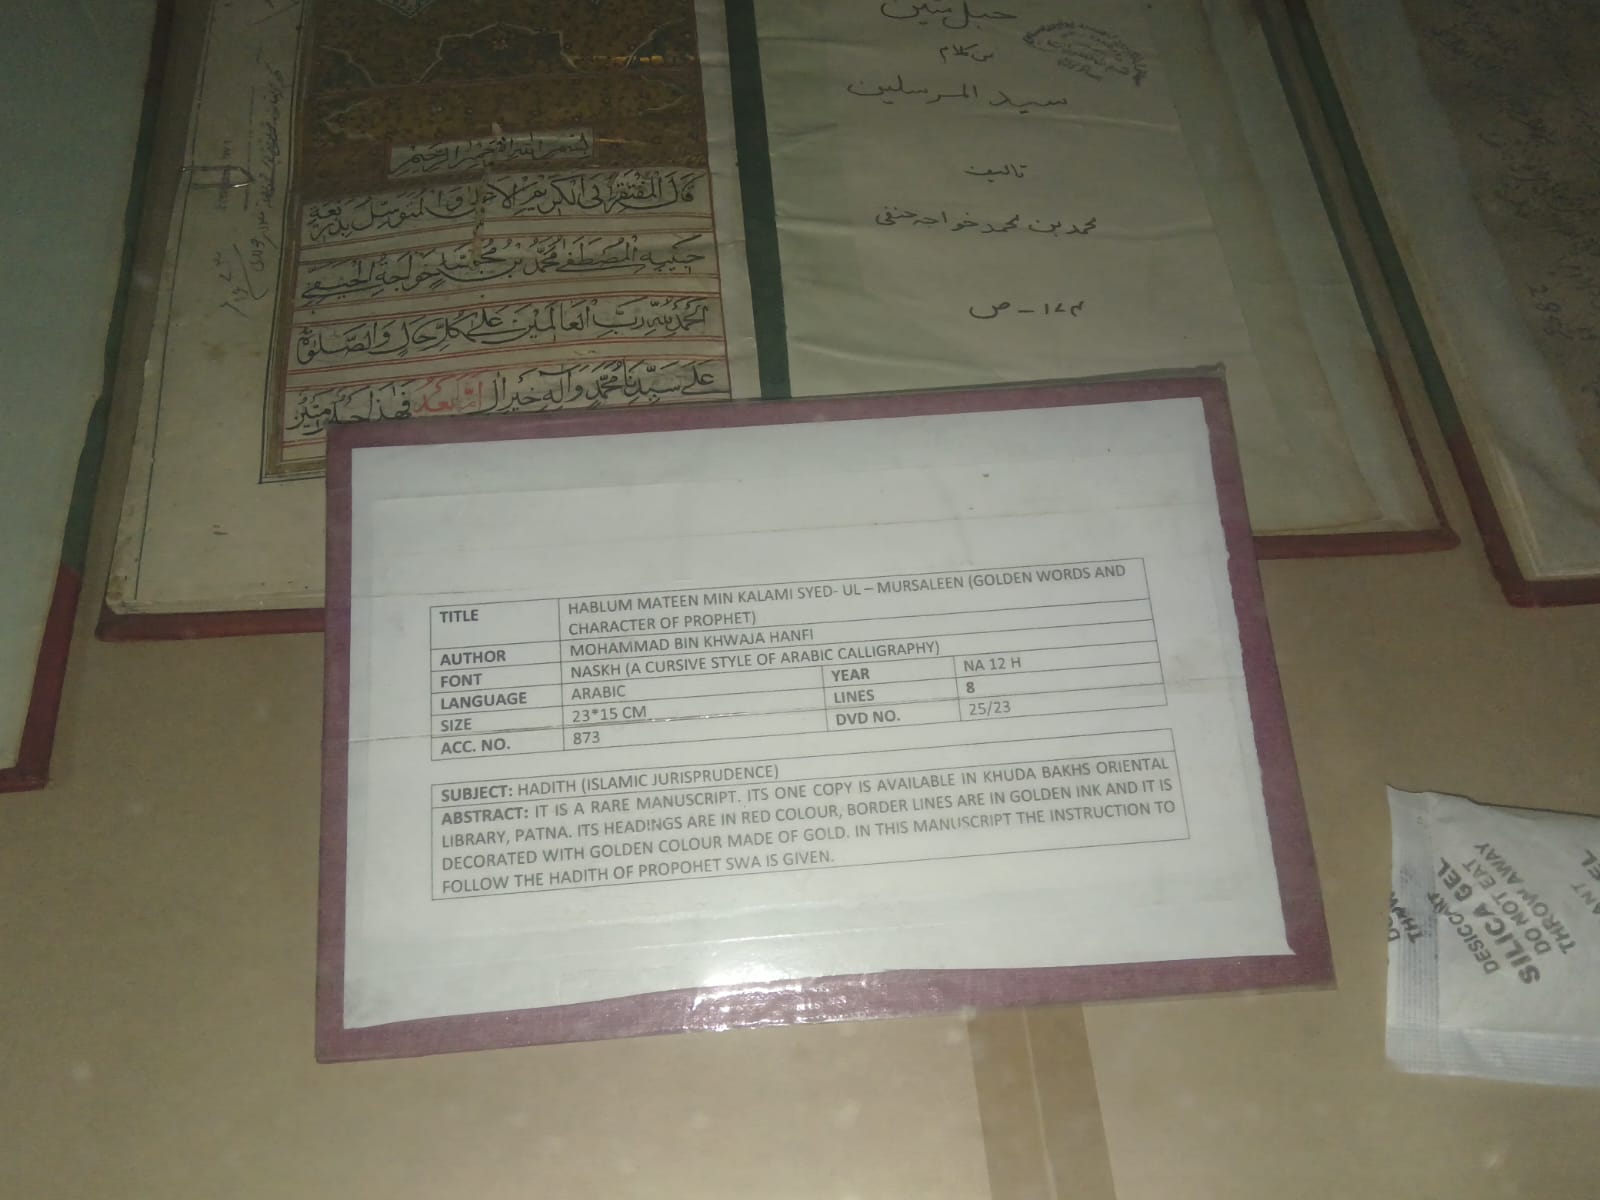 بسم الله الرحمن الرحيم
قَالَ الْمُفْتَقِرُ إِلَى الْكَرِيْمِ الْأَحَقِّ وَالْمُتَوَسِّلُ بِذَرِيْعَةِ
حَبِيْبِهِ الْمُصْطَفٰے مُحَمَّدُ بْنُ مُحَمَّد خَوَاجَةُ الْحَنَفِيُّ
اَلْحَمْدُ لِلّٰهِ رَبِّ الْعَالَمِيْنَ عَلٰى كُلِّ حَالٍ وَالصَّلٰوةُ
عَلٰے سَيِّدِنَا مُحَمَّدٍ وَاٰلِهٖ خَيْرِ اٰلٍ اَمَّا بَعْدُ فَهٰذَا حَبْلٌ مَتِيْنٌ
حبل متین
من کلام
سید المرسلین
تالیف
محمد بن محمد خواجہ حنفی
م ۱۲ - ص
TITLE HABLUM MATEEN MIN KALAMI SYED- UL – MURSALEEN (GOLDEN WORDS AND
CHARACTER OF PROPHET)
AUTHOR MOHAMMAD BIN KHWAJA HANFI
FONT NASKH (A CURSIVE STYLE OF ARABIC CALLIGRAPHY)
LANGUAGE ARABIC YEAR NA 12 H
SIZE 23*15 CM LINES 8
ACC. NO. 873 DVD NO. 25/23
SUBJECT: HADITH (ISLAMIC JURISPRUDENCE)
ABSTRACT: IT IS A RARE MANUSCRIPT. ITS ONE COPY IS AVAILABLE IN KHUDA BAKHS ORIENTAL
LIBRARY, PATNA. ITS HEADINGS ARE IN RED COLOUR, BORDER LINES ARE IN GOLDEN INK AND IT IS
DECORATED WITH GOLDEN COLOUR MADE OF GOLD. IN THIS MANUSCRIPT THE INSTRUCTION TO
FOLLOW THE HADITH OF PROPOHET SWA IS GIVEN.
DESICCANT
SILICA GEL
DO NOT EAT
THROW AWAY